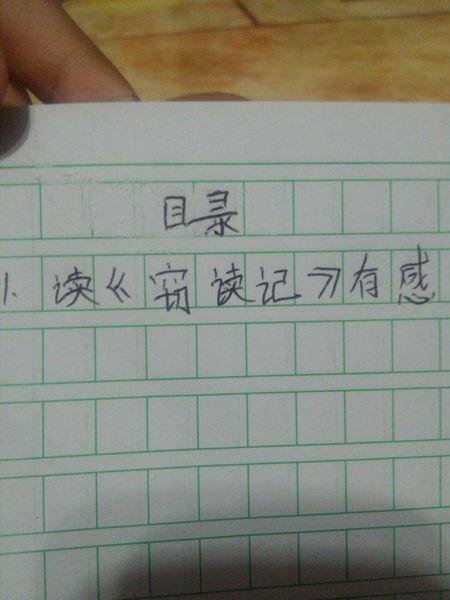 目录
1、读《窃读记》有感